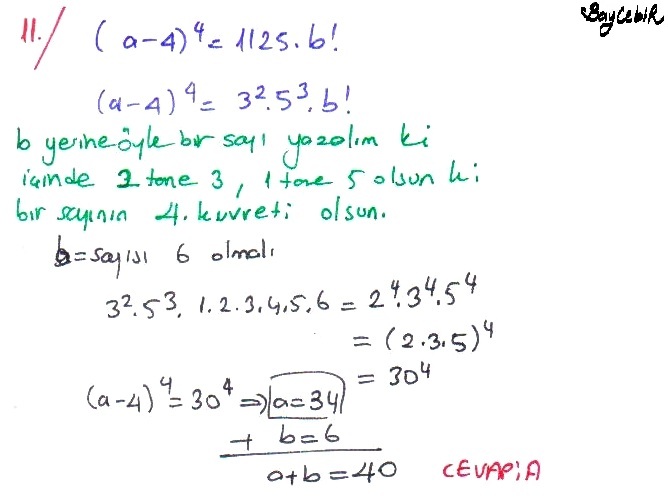 BayCebir
11.) (a-4)⁴ = 1125.b!
(a-4)⁴ = 3².5³.b!
b yerine öyle bir sayı yazalım ki
içinde 2 tane 3, 1 tane 5 olsun ki
bir sayının 4. kuvveti olsun.
b = sayısı 6 olmalı
3².5³. 1.2.3.4.5.6 = 2⁴.3⁴.5⁴
= (2.3.5)⁴
= 30⁴
(a-4)⁴ = 30⁴ ⇒ a=34
+ b=6
a+b=40 CEVAP: A